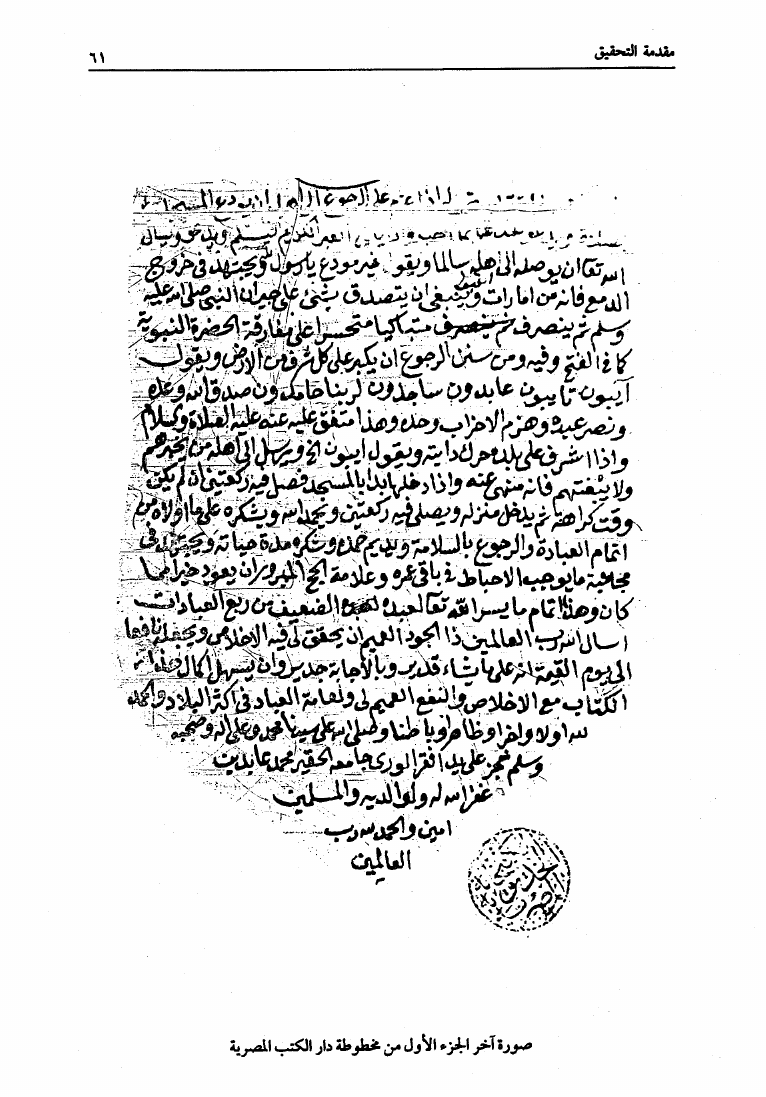 مقدمة التحقيق
٦١
على الرجوع
الله تعا ان يوصله الى اهله سالما ويقول غير مودع يا رسول الله ويجتهد في خروج
الدمع فانه من امارات القبول وينبغي ان يتصدق بشئ على جيران النبي صلى الله عليه
وسلم ثم ينصرف متباكيا متحسرا على مفارقة الحضرة النبوية
كما في الفتح وفيه ومن سنن الرجوع ان يكبر على كل شرف من الارض ويقول
آيبون تايبون عابدون ساجدون لربنا حامدون صدق الله وعده
ونصر عبده وهزم الاحزاب وحده وهذا متفق عليه عنه عليه الصلاة والسلام
واذا اشرف على بلده حرك دابته ويقول ايبون الخ ويرسل الى اهله من يخبرهم
ولا يبغتهم فانه منهي عنه واذا دخلها بدا بالمسجد فصلى فيه ركعتين ان لم يكن
وقت كراهة ثم يدخل منزله ويصلي فيه ركعتين ويحمد الله ويشكره على ما اولاه من
اتمام العبادة والرجوع بالسلامة ويديم حمده وشكره مدة حياته ويجتهد في
مجانبة ما يوجب الاحباط في باقي عمره وعلامة الحج المبرور ان يعود خيرا مما
كان وهذا اتمام ما يسر الله تعا لعبده الضعيف من ربع العبادات
اسال الله رب العالمين ذا الجود العميم ان يحقق لي فيه الاخلاص ويجعله نافعا
الى يوم القيمة انه على ما يشاء قدير وبالاجابة جدير وان يسهل اكمال
الكتاب مع الاخلاص والنفع العميم لي ولعامة العباد في اكثر البلاد والحمد
لله اولا واخرا وظاهرا وباطنا وصلى الله على سيدنا محمد وعلى اله وصحبه
وسلم نجز على يد افقر الورى جامعه الحقير محمد عابدين
غفر الله له ولوالديه والمسلمين
امين والحمد لله رب
العالمين
صورة آخر الجزء الأول من مخطوطة دار الكتب المصرية